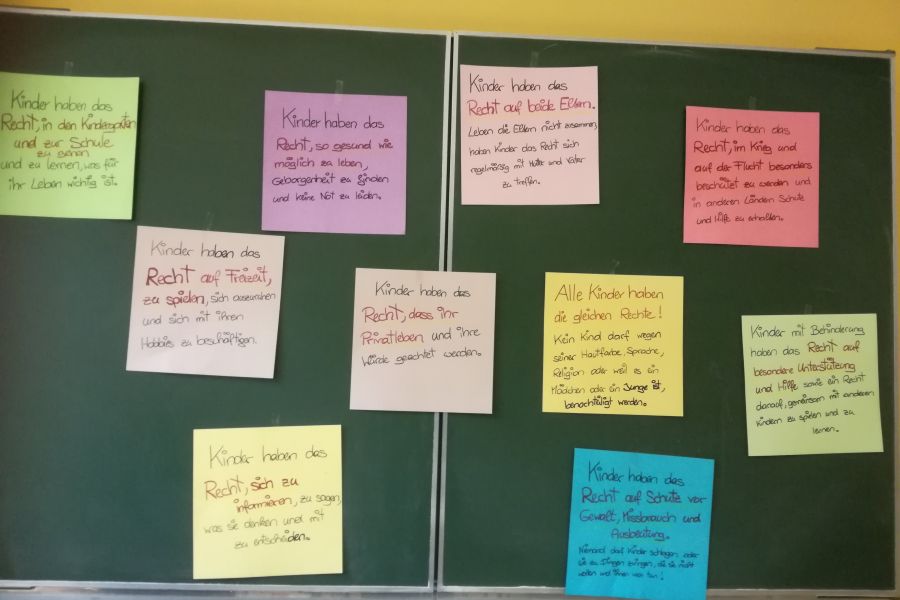 Kinder haben das
Recht, in den Kindergarten
und zur Schule
zu gehen
und zu lernen, was für
ihr Leben wichtig ist.
Kinder haben das
Recht, so gesund wie
möglich zu leben,
Geborgenheit zu finden
und keine Not zu leiden.
Kinder haben das
Recht auf beide Eltern.
Leben die Eltern nicht zusammen,
haben Kinder das Recht sich
regelmäßig mit Mutter und Vater
zu treffen.
Kinder haben das
Recht, im Krieg und
auf der Flucht besonders
beschützt zu werden und
in anderen Ländern Schutz
und Hilfe zu erhalten.
Kinder haben das
Recht auf Freizeit,
zu spielen, sich auszuruhen
und sich mit ihren
Hobbies zu beschäftigen.
Kinder haben das
Recht, dass ihr
Privatleben und ihre
Würde geachtet werden.
Alle Kinder haben
die gleichen Rechte!
Kein Kind darf wegen
seiner Hautfarbe, Sprache,
Religion oder weil es ein
Mädchen oder ein Junge ist,
benachteiligt werden.
Kinder mit Behinderung
haben das Recht auf
besondere Unterstützung
und Hilfe sowie ein Recht
darauf, gemeinsam mit anderen
Kindern zu spielen und zu
lernen.
Kinder haben das
Recht, sich zu
informieren, zu sagen,
was sie denken und mit
zu entscheiden.
Kinder haben das
Recht auf Schutz vor
Gewalt, Missbrauch und
Ausbeutung.
Niemand darf Kinder schlagen oder
sie zu Dingen zwingen, die sie nicht
wollen und ihnen weh tun!